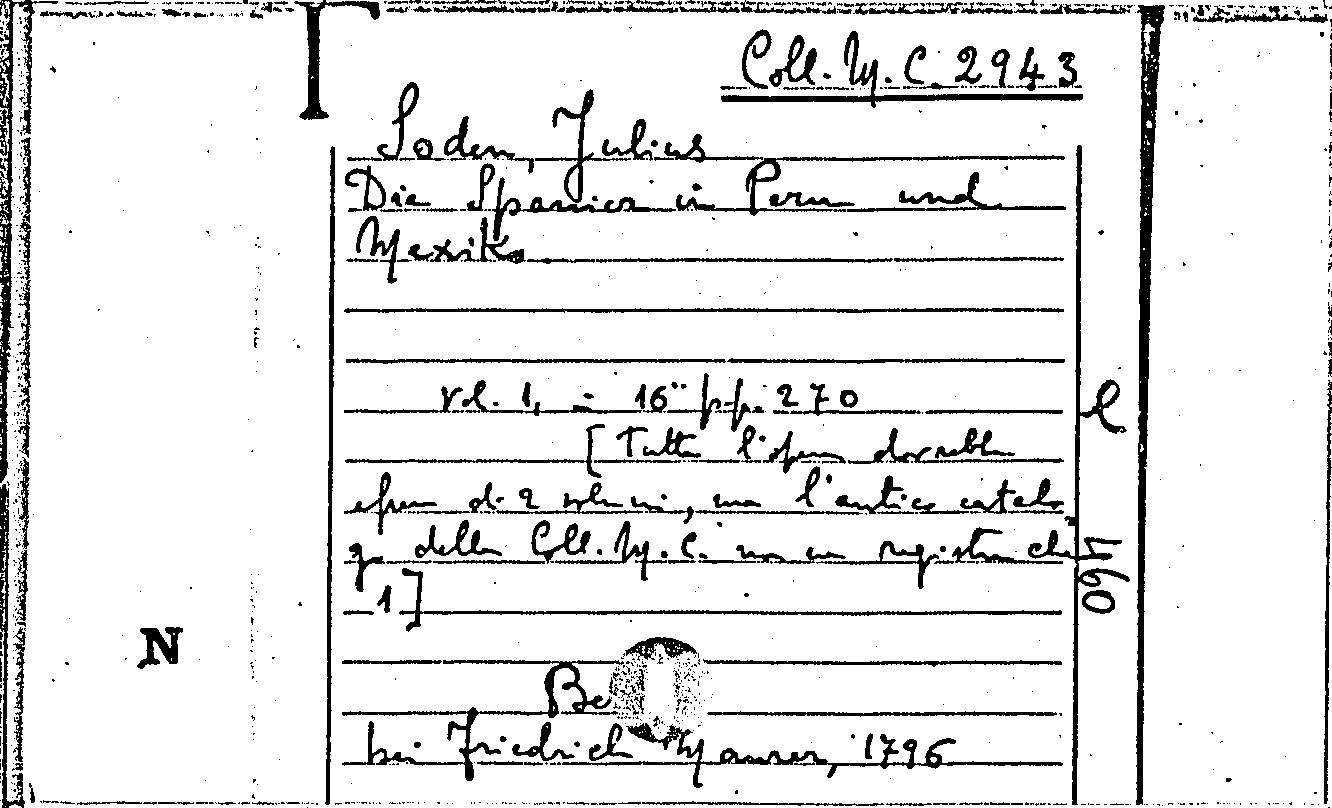 Coll. M. C. 2943
Soden, Julius
Die Spanier in Peru und
Mexiko.
vol. 1, in 16° pp. 270
[Tutta l'opera dovrebbe
essere di 2 volumi, ma l'antico catalo-
go della Coll. M. C. non ne registra che
1]
Be
bei Friedrich Maurer, 1796
N